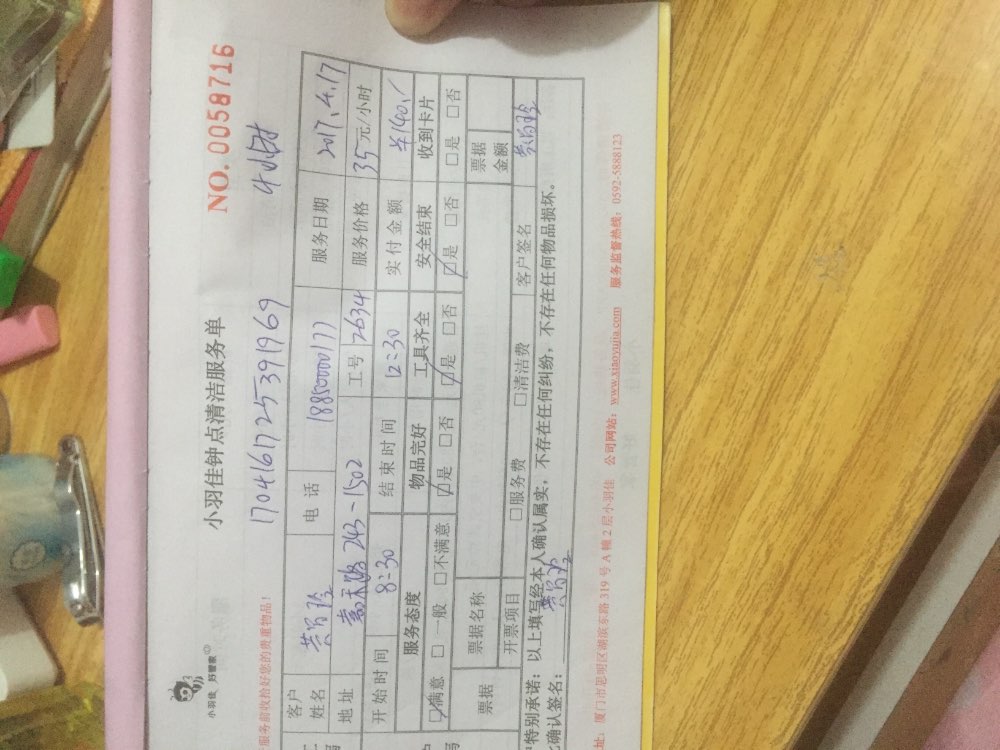 小羽佳 舒管家
小羽佳钟点清洁服务单
NO. 0058716
服务前收拾好您的贵重物品!
1704161725391969 4小时
客户姓名 电话 18850000177 服务日期 2017.4.17
地址 243-1502 工号 2634 服务价格 35元/小时
开始时间 8:30 结束时间 12:30 实付金额 ¥140./
服务态度 物品完好 工具齐全 安全结束 收到卡片
☑满意 □一般 □不满意 ☑是 □否 ☑是 □否 ☑是 □否 □是 □否
票据 票据名称 票据金额
开票项目 □服务费 □清洁费 客户签名
特别承诺:以上填写经本人确认属实,不存在任何纠纷,不存在任何物品损坏。
确认签名:
址:厦门市思明区湖滨东路319号A幢2层小羽佳 公司网站:www.xiaoyujia.com 服务监督热线:0592-5888123